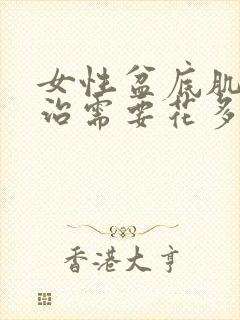 女性盆底肌
治需要花多
香港大亨